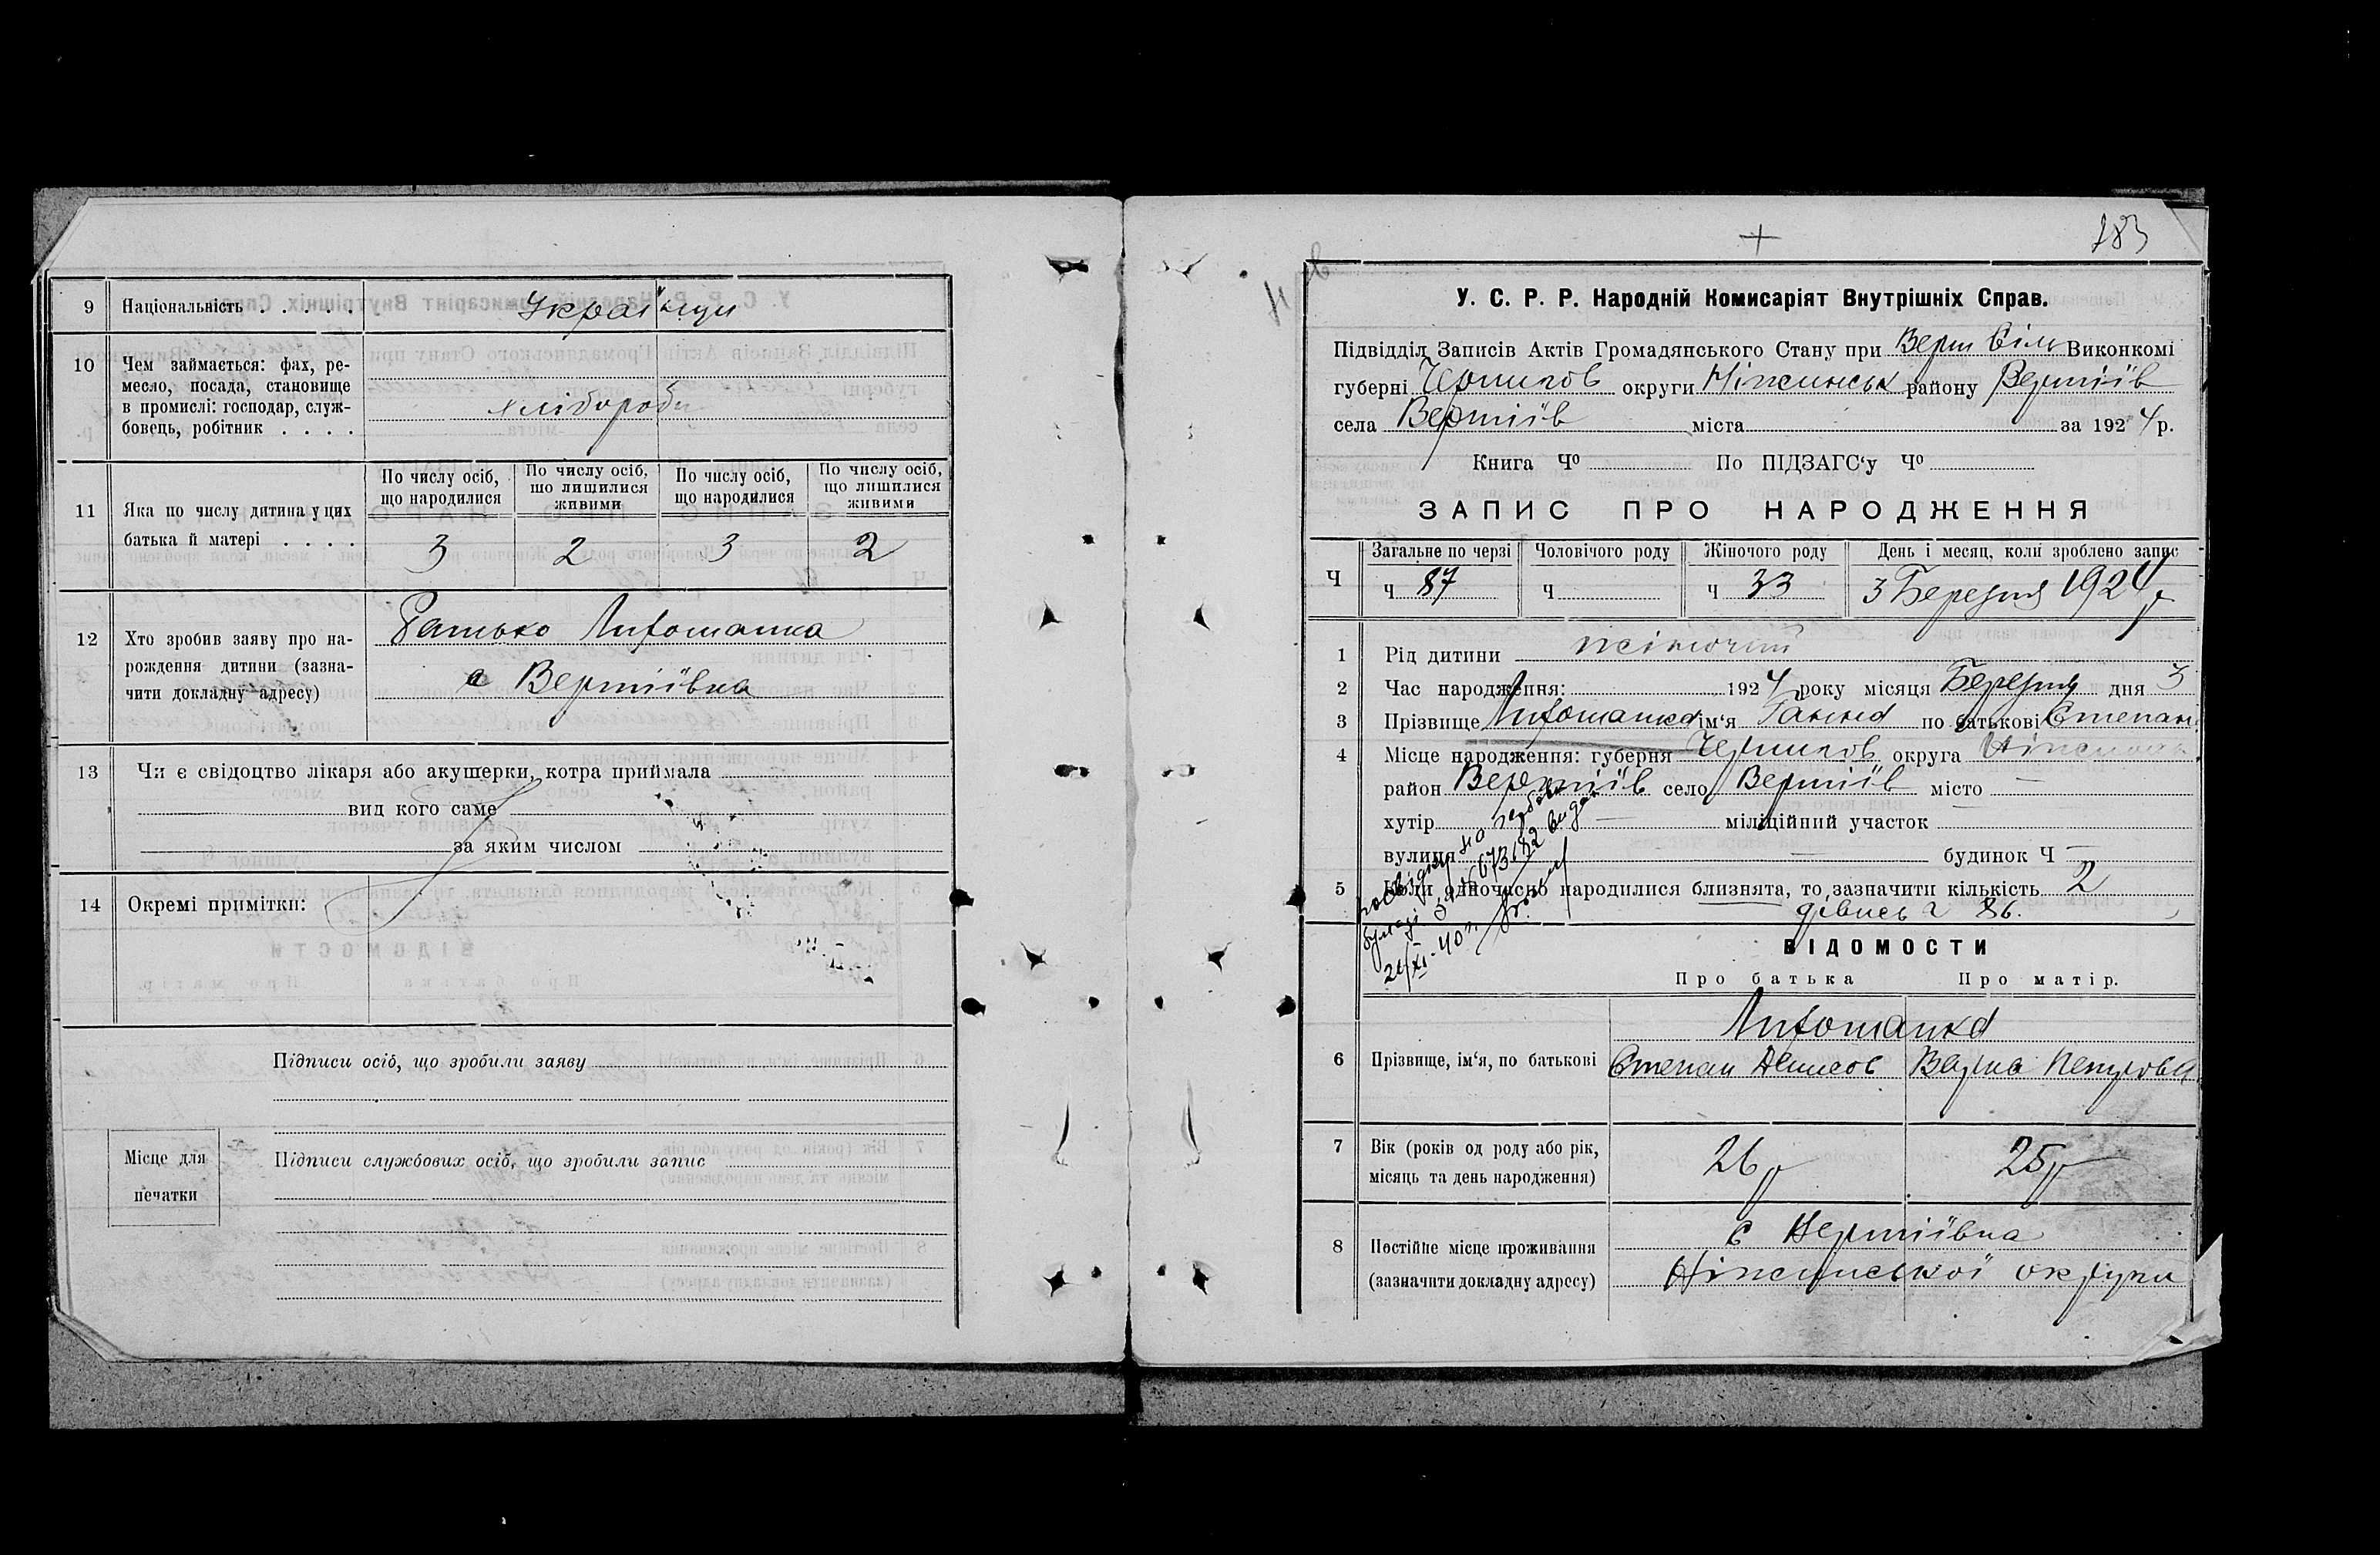 9 Національність . . . . . Українци
10 Чем займається: фах, ре-
месло, посада, становище
в промислі: господар, служ-
бовець, робітник . . . . хлібороби
11 Яка по числу дитина у цих
батька й матері . . . .
По числу осіб, що народилися
По числу осіб, що лишилися живими
По числу осіб, що народилися
По числу осіб, що лишилися живими
3 2 3 2
12 Хто зробив заяву про на-
рождення дитини (зазна-
чити докладну адресу)
Батько
с Вертіївка
13 Чи є свідоцтво лікаря або акушерки, котра приймала
вид кого саме
за яким числом
14 Окремі примітки:
Підписи осіб, що зробили заяву
Місце для
печатки
Підписи службових осіб, що зробили запис
183
У. С. Р. Р. Народній Комисаріят Внутрішніх Справ.
Підвідділ Записів Актів Громадянського Стану при Верт Сіль Виконкомі
губерні Чернигов округи Ніжинськ району Вертіїв
села Вертіїв міста за 1924 р.
Книга Ч⁰ По ПІДЗАГС‘у Ч⁰
ЗАПИС ПРО НАРОДЖЕННЯ
Ч
Загальне по черзі Чоловічого роду Жіночого роду День і месяц, коли зроблено запис
Ч 87 Ч Ч 33 3 Березня 1924 р
1 Рід дитини жіночий
2 Час народження: 1924 року місяця Березня дня 3
3 Прізвище ім‘я Ганна по батькові Степан
4 Місце народження: губерня Чернигов округа Ніжинськ
район Вертіїв село Вертіїв місто —
хутір — міліційний участок
вулиця — будинок Ч —
5 Коли одночасно народилися близнята, то зазначити кількість 2
86.
ВІДОМОСТИ
Про батька Про матір.
6 Прізвище, ім‘я, по батькові
Степан Денисов Варка Петрова
7 Вік (років од роду або рік,
місяць та день народження)
26 р 25 р
8 Постійне місце проживання
(зазначити докладну адресу)
с Вертіївка
Ніжинської округи